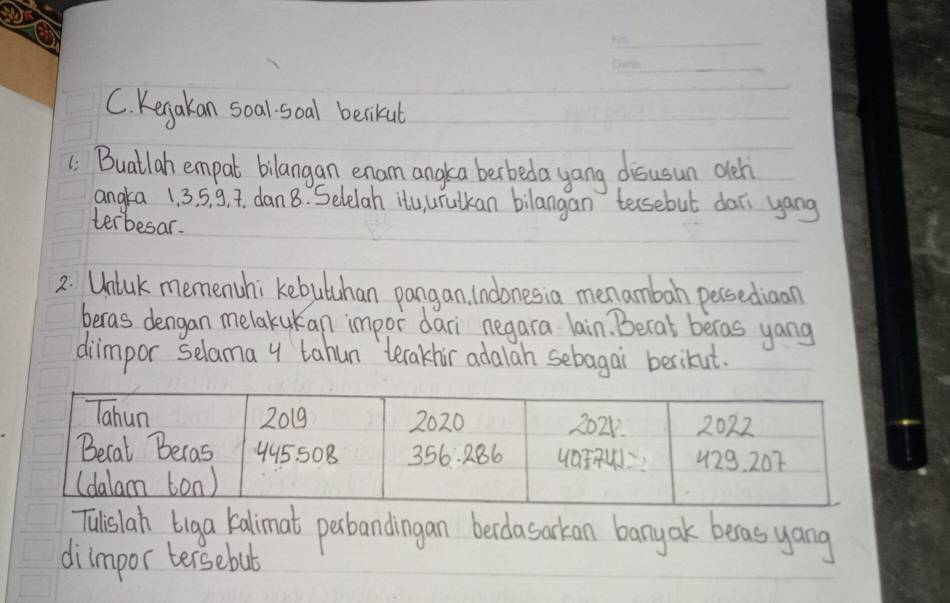 C. Kerjakan soal-soal berikut
1. Buatlah empat bilangan enam angka berbeda yang disusun oleh
angka 1,3,5,9,7, dan 8. Setelah itu, urutkan bilangan tersebut dari yang
terbesar.
2. Untuk memenuhi kebutuhan pangan, Indonesia menambah persediaan
beras dengan melakukan impor dari negara lain. Berat beras yang
diimpor selama 4 tahun terakhir adalah sebagai berikut.
Tahun 2019 2020 2021 2022
Berat Beras 445.508 356.286 407.741 429.207
(dalam ton)
Tulislah tiga kalimat perbandingan berdasarkan banyak beras yang
diimpor tersebut